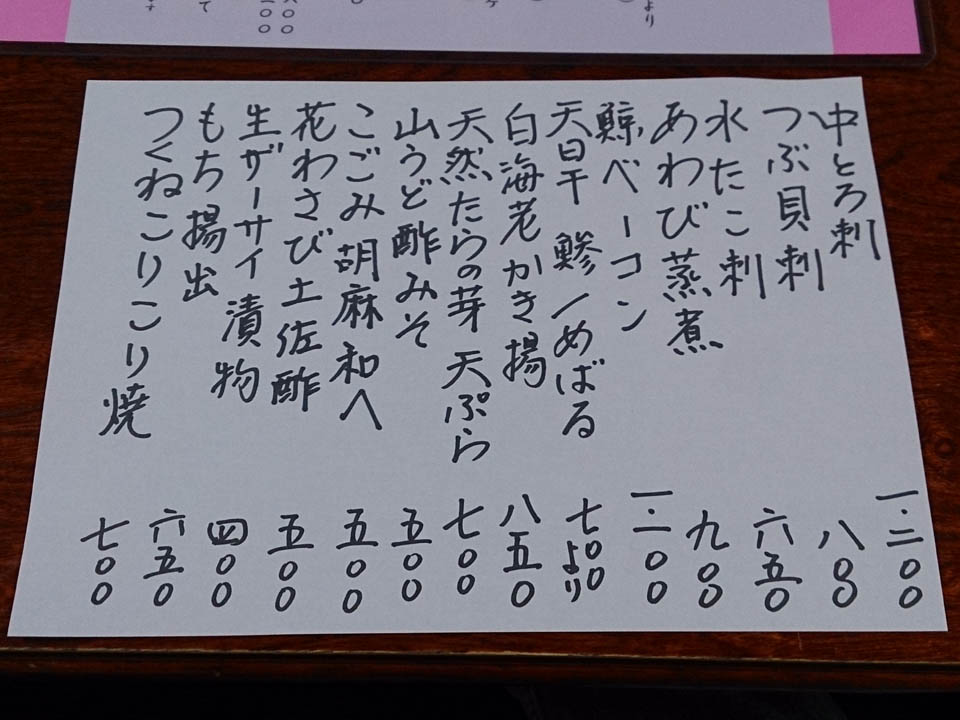 より
て
中とろ刺 一.二〇〇
つぶ貝刺 八〇〇
水たこ刺 六五〇
あわび蒸煮 九〇〇
鯨ベーコン 一.一〇〇
天日干 鯵/めばる 七〇〇より
白海老かき揚 八五〇
天然たらの芽 天ぷら 七〇〇
山うど酢みそ 五〇〇
こごみ 胡麻和へ 五〇〇
花わさび土佐酢 五〇〇
生ザーサイ 漬物 四〇〇
もち揚出 六五〇
つくねこりこり焼 七〇〇